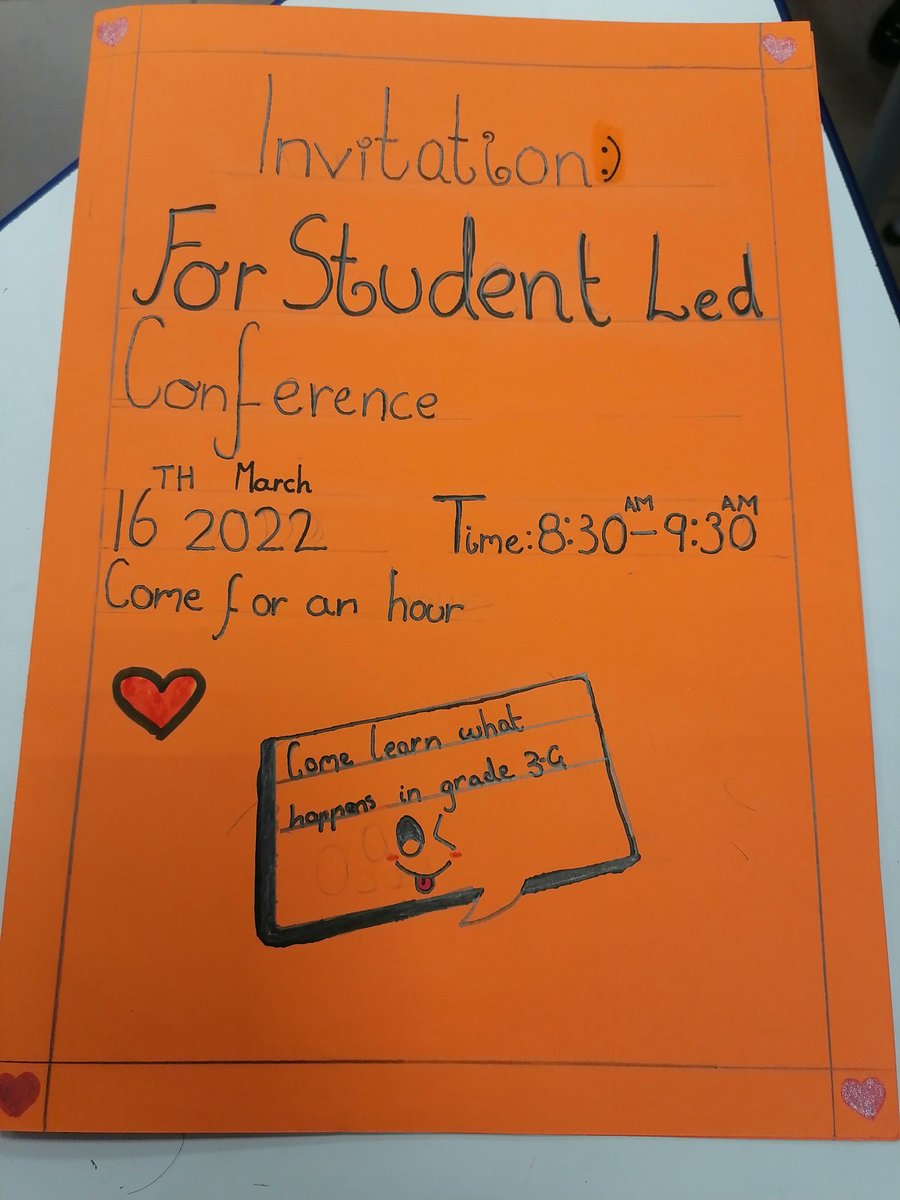 Invitation:)
For Student Led
Conference
16TH March 2022
Time: 8:30AM-9:30AM
Come for an hour
Come learn what
happens in grade 3-G